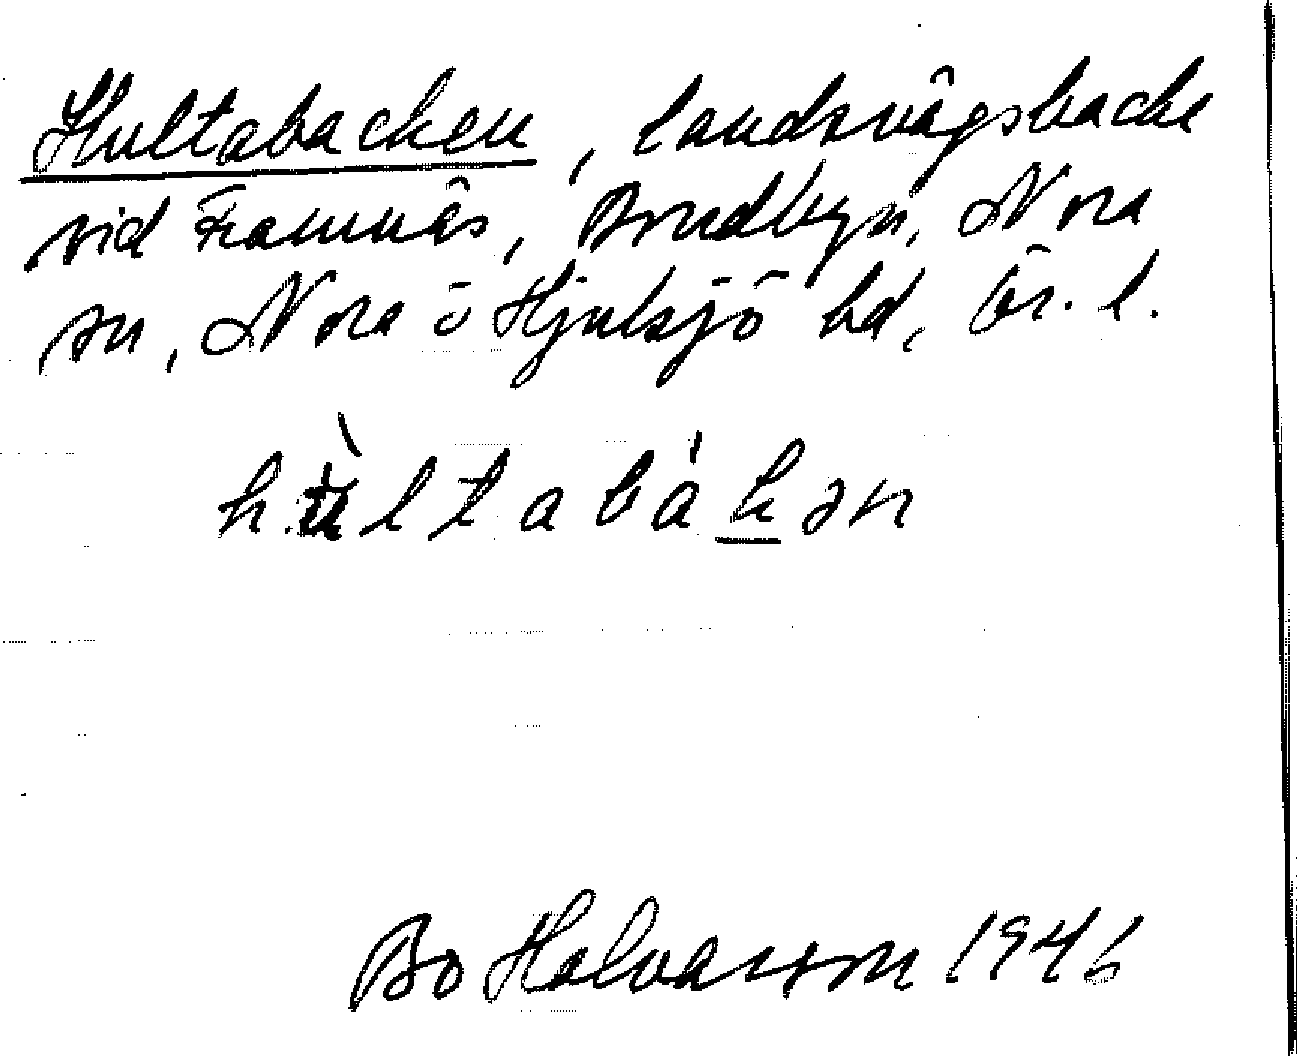 Hultabacken, landsvägsbacke
vid Framnäs, Bondbyn, Nora
sn, Nora o Hjulsjö hd, Ör. l.
hùltabákən
Bo Halvarsson 1946